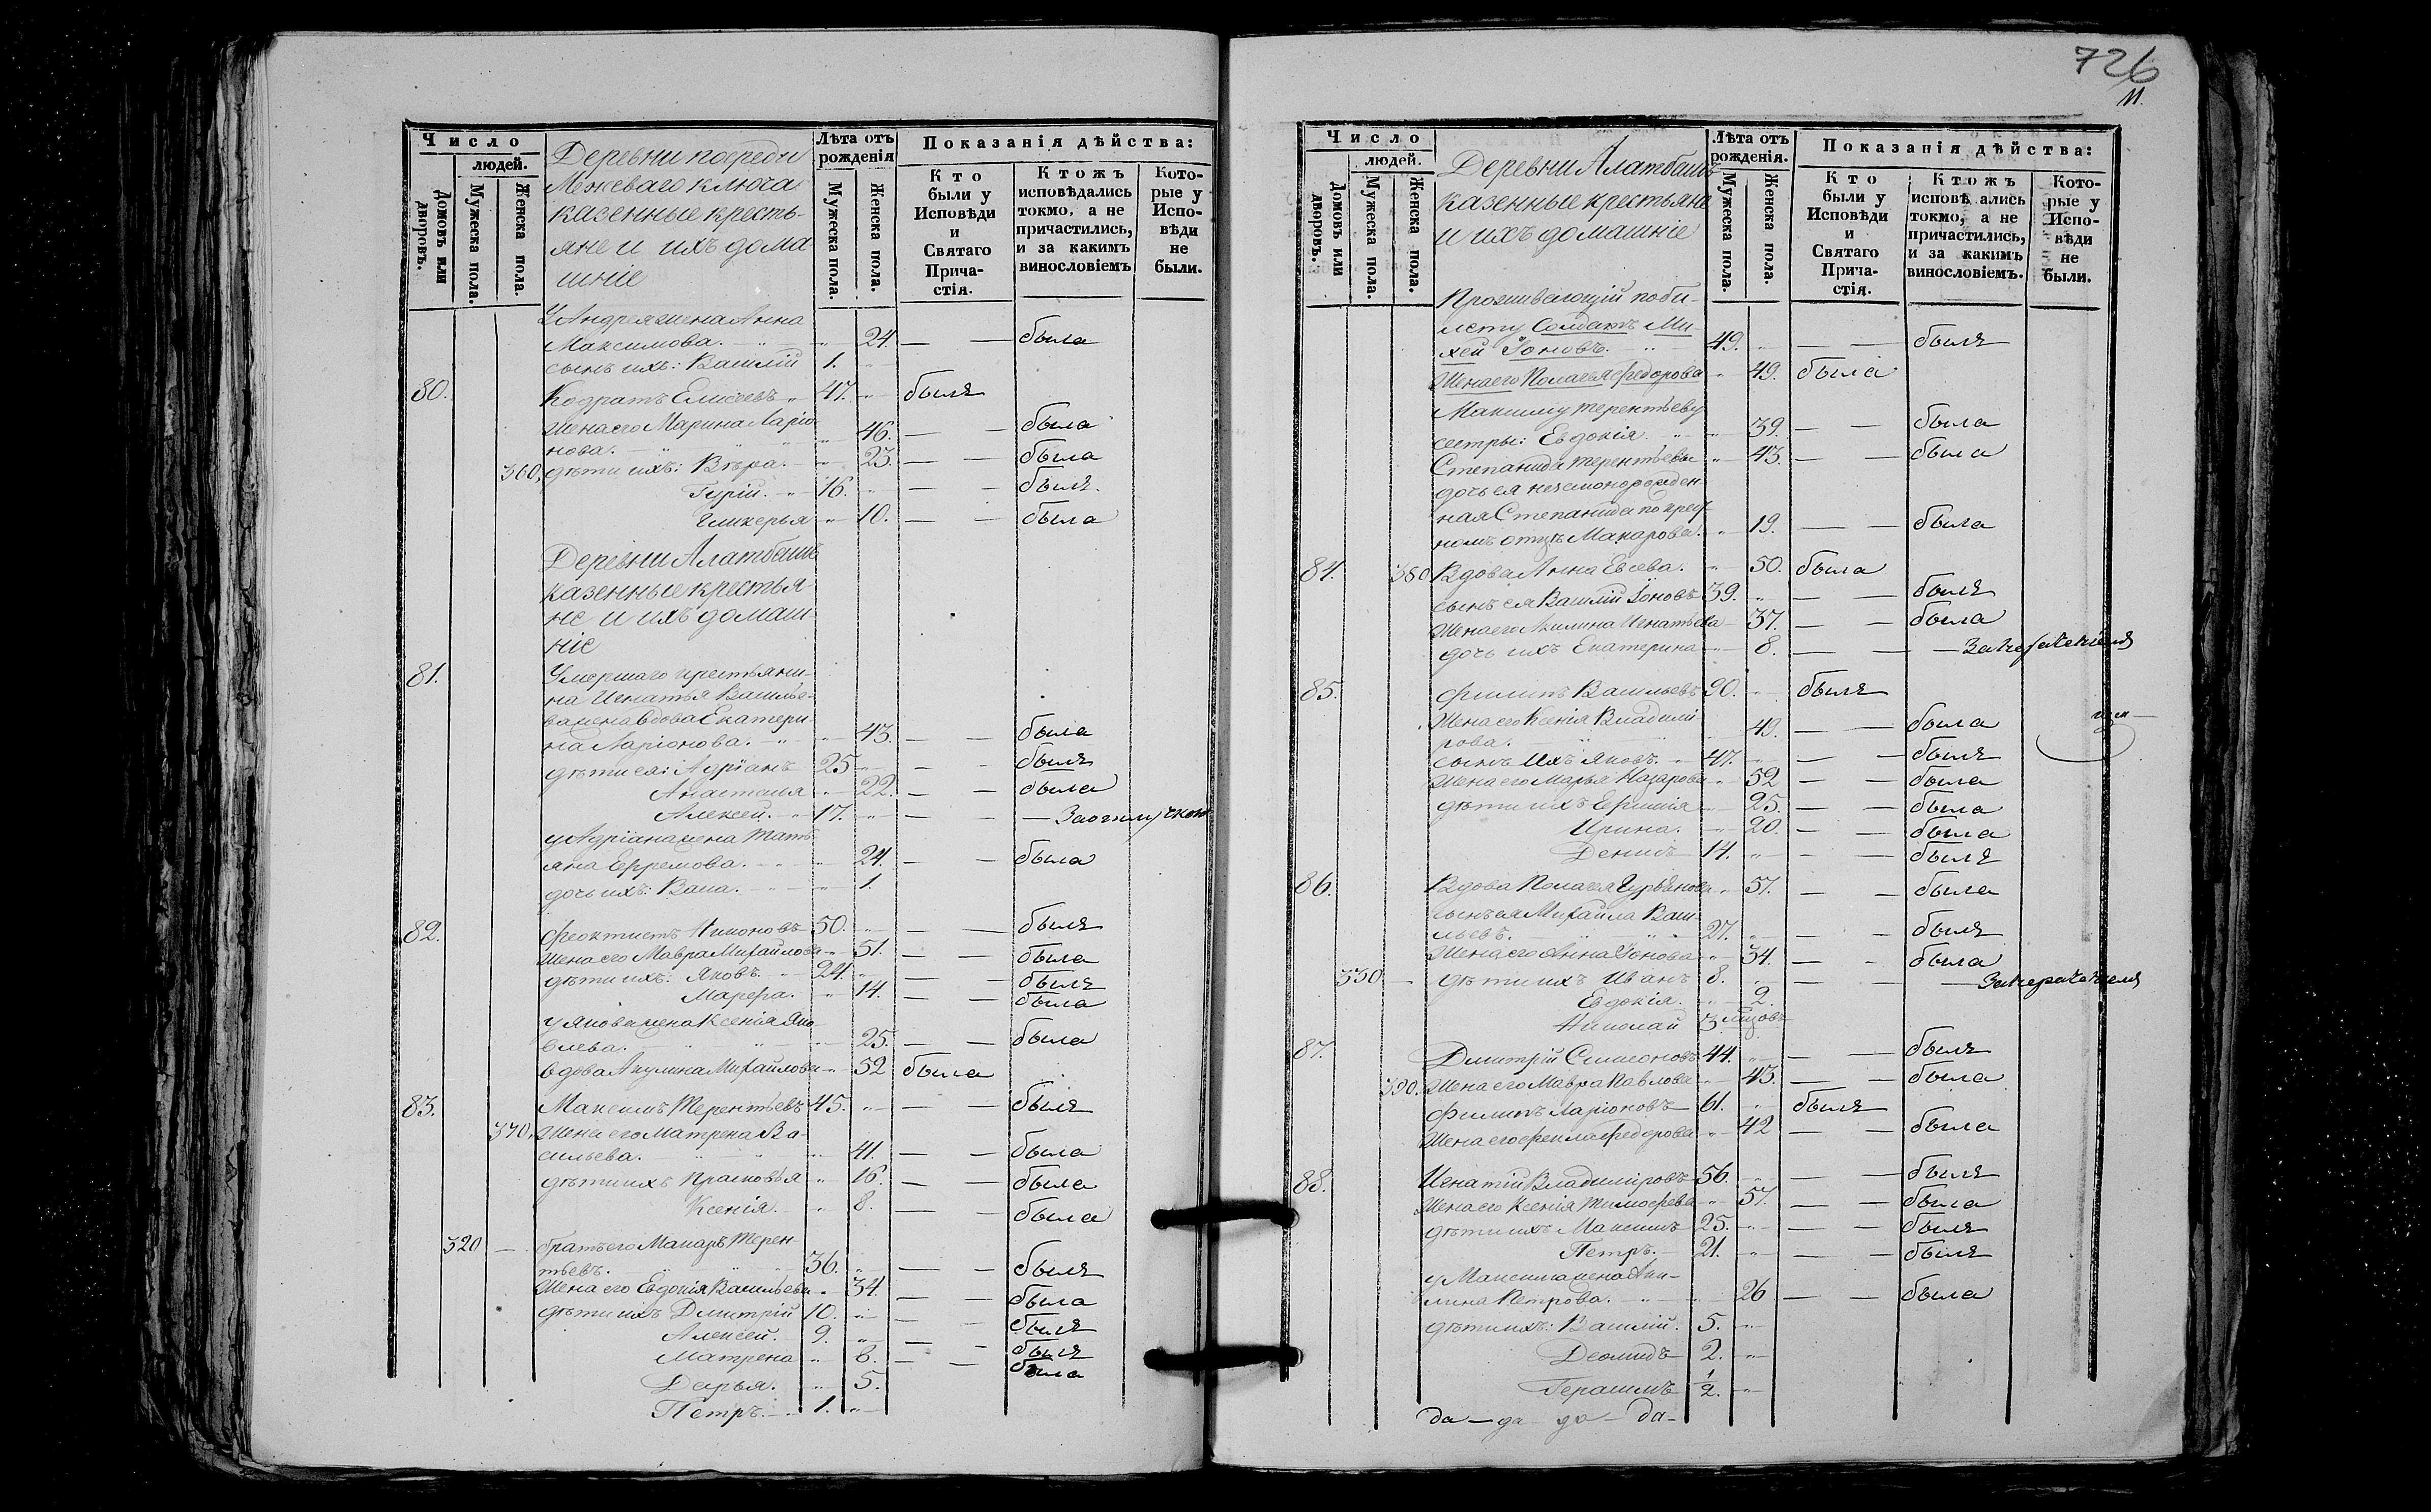 726
11.
Число
людей.
Домовъ или дворовъ.
Мужеска пола.
Женска пола.
Деревни посреди
Межеваго ключа
казенные кресть-
яне и ихъ дома
шніе
Лѣта отъ рожденія
Мужеска пола.
Женска пола.
Показанія дѣйства:
Кто были у Исповѣди и Святаго Прича-стія.
Ктожъ исповѣдались токмо, а не причастились, и за какимъ винословіемъ
Кото-рые у Испо-вѣди не были.
У Андрея жена Анна
Максимова. 24. была
сынъ ихъ: Василій 1.
80. Кодратъ Елисеевъ 47. былъ
Жена его Марина Ларіо
нова. 46. была
360, дѣти ихъ: Вѣра. 23. была
Гурій. 16. былъ
Гликерья 10. была
Деревни Алатбашъ
казенные крестья-
не и ихъ домаш
ніе
81. Умершаго крестьяни-
на Игнатья Василье-
ва жена вдова Екатери
на Ларіонова. 43. была
дѣти ея: Адріанъ 25 былъ
Анастасія 22. была
Алексей. 17. За отлучкою
у Адріана жена Тать
яна Ефремова. 24. была
дочь ихъ: Васса. 1.
82. Феоктистъ Никоновъ 50. былъ
Жена его Мавра Михайлова 51. была
дѣти ихъ: Яковъ. 24. былъ
Марфа. 14. была
у Якова жена Ксенія Яко
влева. 25. была
вдова Акулина Михайлова 52 была
83. Максимъ Терентьевъ 45. былъ
370. Жена его Матрена Ва-
сильева. 41. была
дѣти ихъ Прасковья 16. была
Ксенія. 8. была
320 братъ его Макаръ Терен-
тьевъ. 36. былъ
Жена его Евдокія Васильева 34. была
дѣти ихъ Дмитрій 10. былъ
Алексей. 9. былъ
Матрена 6. была
Дарья. 5.
Петръ. 1.
Число
людей.
Домовъ или дворовъ.
Мужеска пола.
Женска пола.
Деревни Алатбашъ
казенные крестьяне
и ихъ домашніе
Лѣта отъ рожденія.
Мужеска пола.
Женска пола.
Показанія дѣйства:
Кто были у Исповѣди и Святаго Прича-стія.
Ктожъ исповѣ ались токмо, а не причастились, и за какимъ винословіемъ.
Кото-рые у Испо-вѣди не были.
Проживающій по би-
лету Солдатъ Ми-
хей Іоновъ. 49. былъ
Жена его Пелагья Федорова 49. была
Максиму Терентьеву
сестры: Евдокія. 39. была
Степанида Терентьевы 43. была
дочь ея незаконорожден-
ная Степанида по крест
номъ отцѣ Макарова. 19. была
84. 380 Вдова Анна Евсева. 50. была
сынъ ея Василій Іоновъ 39. былъ
Жена его Акилина Игнатьева 37. была
дочь ихъ Екатерина 8.
85. Филипъ Васильевъ 90. былъ
Жена его Ксенія Владими
рова. 49. была
сынъ ихъ Яковъ. 47. былъ
Жена его Марья Назарова 52 была
дѣти ихъ 25. была
Ирина. 20. была
Денисъ 14. былъ
86. Вдова Пелагея Гурьянова 57. была
сынъ ея Михайла Васи-
льевъ. 27. былъ
Жена его Анна Іонова 34. была
330 дѣти ихъ Иванъ 8.
Евдокія. 2.
Николай 3
87. Дмитрій Симеоновъ 44. былъ
390. Жена его Мавра Павлова 43. была
Филипъ Ларіоновъ 61. былъ
Жена его Фекла Федорова 42 была
88. Игнатій Владиміровъ 56. былъ
Жена его Ксенія Тимофева 57. была
дѣти ихъ Максимъ 25. былъ
Петръ. 21. былъ
у Максима жена Аки-
лина Петрова. 26 была
дѣти ихъ: Василій. 5.
Деомидъ 2.
Герасимъ 1/2.
да-да-да-да-